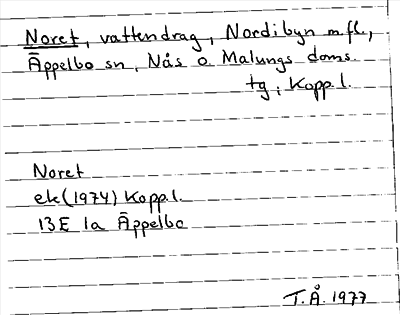 Noret, vattendrag, Nordibyn m fl.,
Äppelbo sn, Nås o Malungs doms.
tg, Kopp.l.
Noret
ek (1974) Kopp.l.
13E 1a Äppelbo
T.Å. 1977